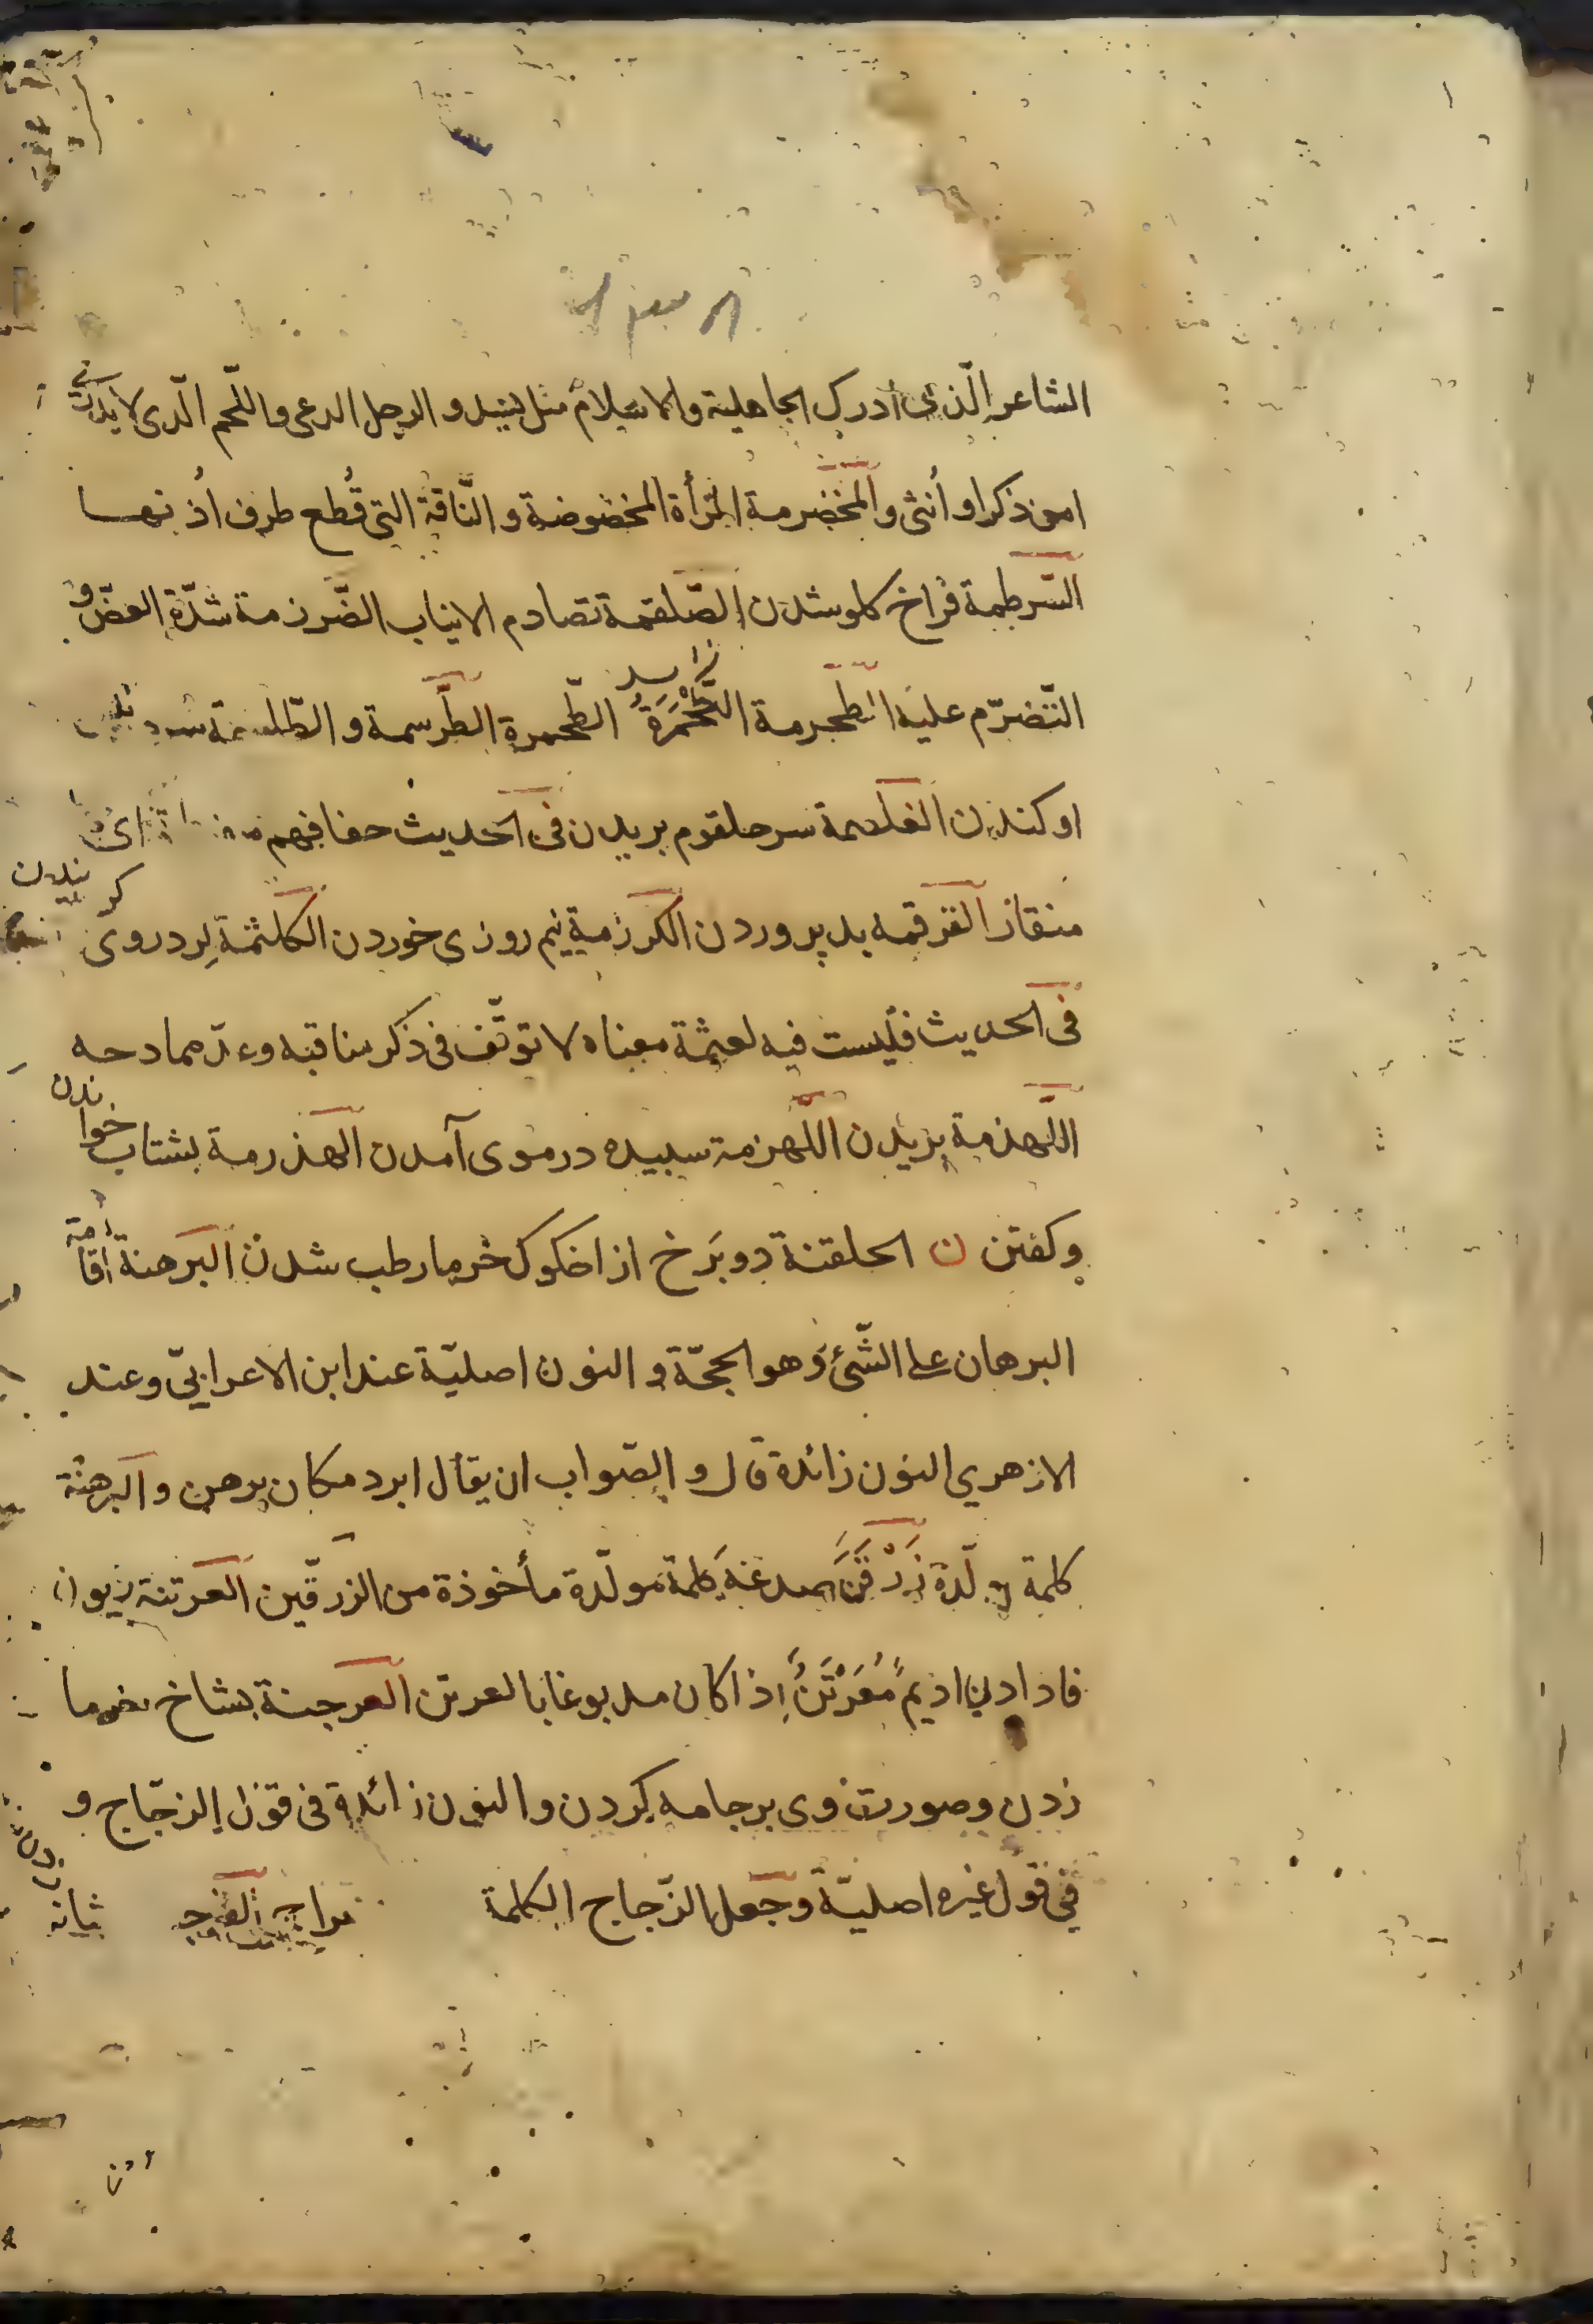 الشاعر الّذى أدرك الجاهلية والاسلام مثل لبيد والرجل الدعى واللّحم الّذى لا يدرى
امن ذكر او أنثى والمخضرمة المرأة المخفوضة والنّاقة التى قُطع طرف أذنها
السّرطمة فراخ كلو شدن الصّلقمة تصادم الانياب الضّرزمة شدّة العضّ و
التّضرّم عليه الطحرمة الطّحْمَرَةُ الطّحمرة الطّرسمة و الطّلسمة سر
او كندن الغلصمة سر حلقوم بريدن فى الحديث حفافيهم اى
منقاز القرقمه بد پروردن الكرزمة نيم روزى خوردن الكلثمة لرد روى
كر نيدن
فى الحديث فليست فيه لعثمة معناه لا توقّف فى ذكر مناقبه وعدّ ممادحه
اللّهذمة بريدن اللّهزمة سبيده در موى آمدن الهذرمة بشتاب خواندن
وكفتن ن الحلقنة دو بَرخ از اخكوك خرما رطب شدن البرهنة اقامة
البرهان على الشّئ وهو الحجّة و النون اصليّة عند ابن الاعرابىّ وعند
الازهرى النون زائدة قال و الصّواب ان يقال ابره مكان برهن و البرهنة
كلمة مولّدة زَرْفَنَ صدغه كلمة مولّدة مأخوذة من الزرفين العرتنة بزيون
فا دادن اديم مُعَرْتَنٌ اذا كان مدبوغا بالعرتن العرجنة بشاخ خرما
زدن و صورت وى بر جامه كردن و النون زائدة فى قول الزجّاج و
فى قول غيره اصليّة وجعل الزّجاج الكلمة